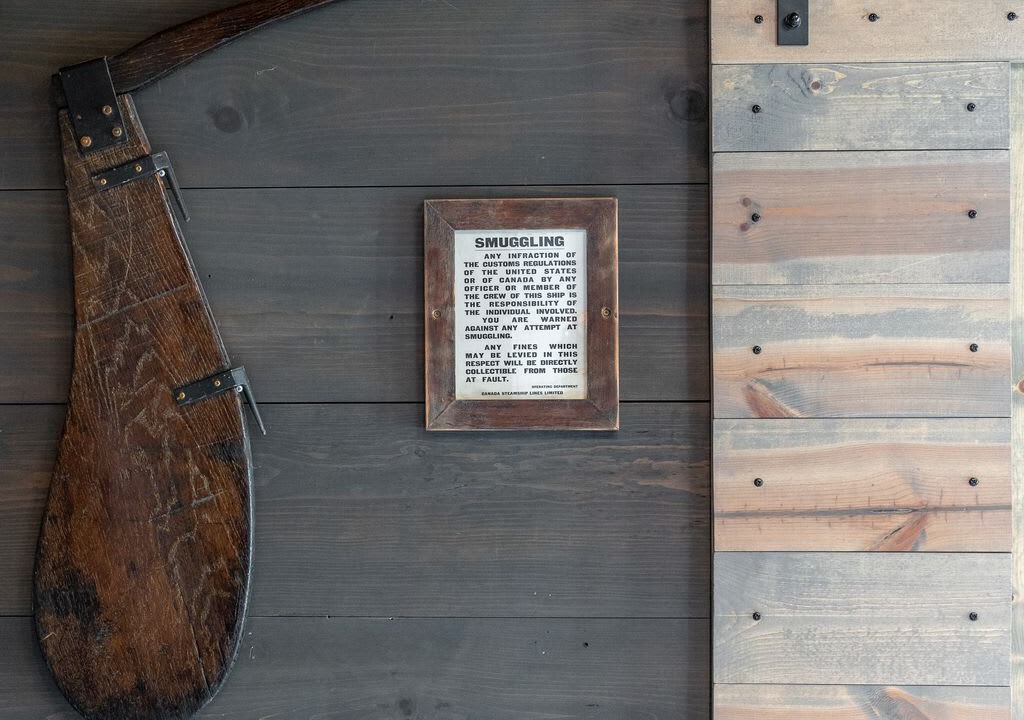 SMUGGLING
ANY INFRACTION OF
THE CUSTOMS REGULATIONS
OF THE UNITED STATES
OR OF CANADA BY ANY
OFFICER OR MEMBER OF
THE CREW OF THIS SHIP IS
THE RESPONSIBILITY OF
THE INDIVIDUAL INVOLVED.
YOU ARE WARNED
AGAINST ANY ATTEMPT AT
SMUGGLING.
ANY FINES WHICH
MAY BE LEVIED IN THIS
RESPECT WILL BE DIRECTLY
COLLECTIBLE FROM THOSE
AT FAULT.
OPERATING DEPARTMENT
CANADA STEAMSHIP LINES LIMITED